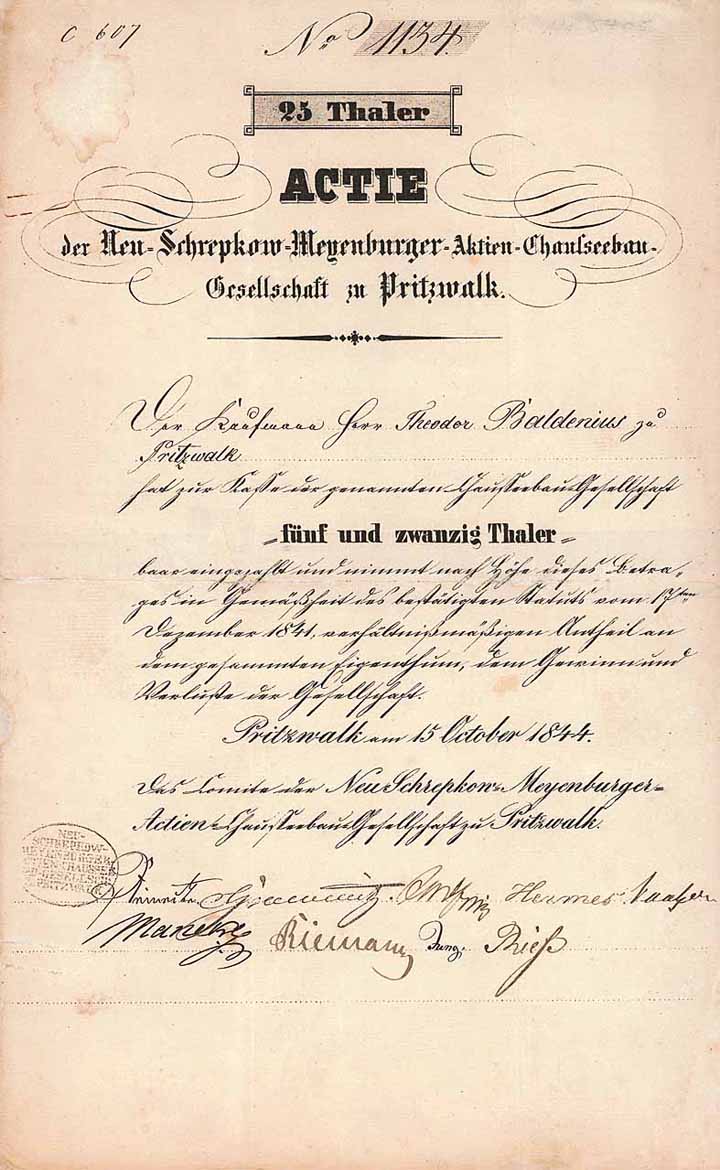 C 607
No 1134.
25 Thaler
ACTIE
der Neu-Schrepkow-Meyenburger-Aktien-Chausseebau-
Gesellschaft zu Pritzwalk.
Der Kaufmann Herr Theodor Baldenius zu
Pritzwalk
hat zur Kasse der genannten Chausseebau-Gesellschaft
„fünf und zwanzig Thaler„
baar eingezahlt und nimmt nach Höhe dieses Betra-
ges in Gemäßheit des bestätigten Statuts vom 17ten
Dezember 1841, verhältnißmäßigen Antheil an
dem gesammten Eigenthum, dem Gewinn und
Verluste der Gesellschaft.
Pritzwalk am 15 October 1844.
Das Comite der Neu Schrepkow-Meyenburger-
Actien-Chausseebau-Gesellschaft zu Pritzwalk.
NEU-
SCHREPKOW-
MEYENBURGER
PRITZWALK
Hermes
Riemann Jung. Rieß